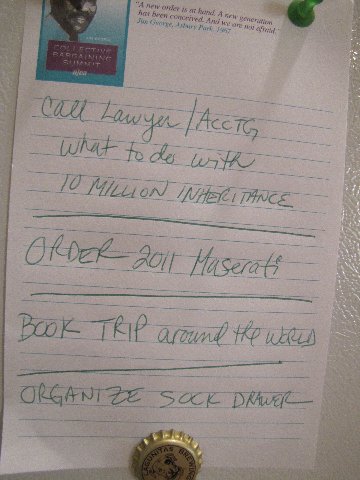 "A new order is at hand. A new generation
has been conceived. And we are not afraid.
Jim George, Asbury Park, 1967
COLLECTIVE
BARGAINING
SUMMIT
njea
Call Lawyer/ACCTG
what to do with
10 MILLION INHERITANCE
ORDER 2011 Maserati
BOOK TRIP around the WORLD
ORGANIZE SOCK DRAWER
LAGUNITAS BREWING